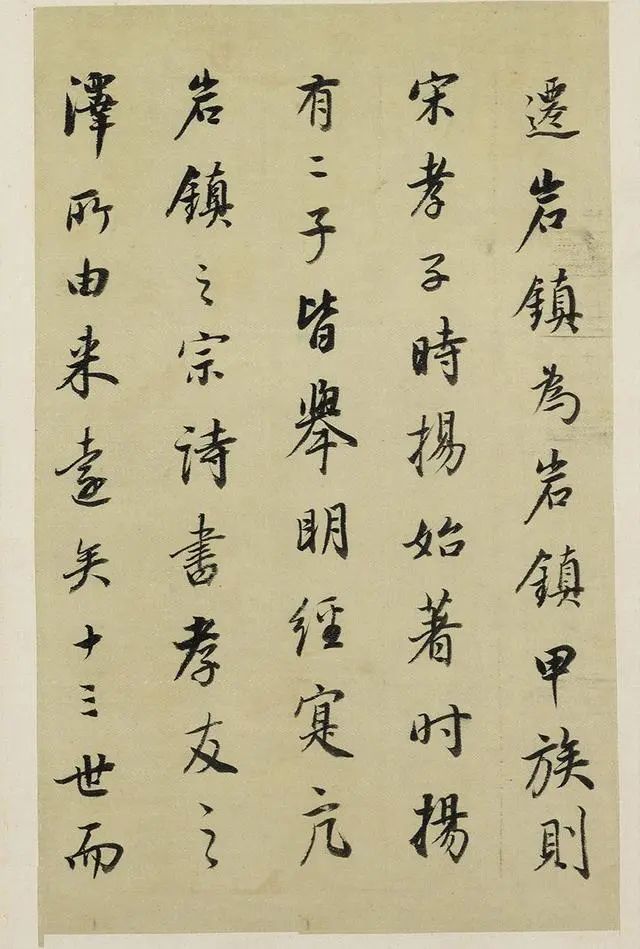 遷岩鎮為岩鎮甲族則
宋孝子時揚始著时揚
有二子皆舉明經寔亢
岩鎮之宗詩書孝友之
澤所由来遠矣十三世而